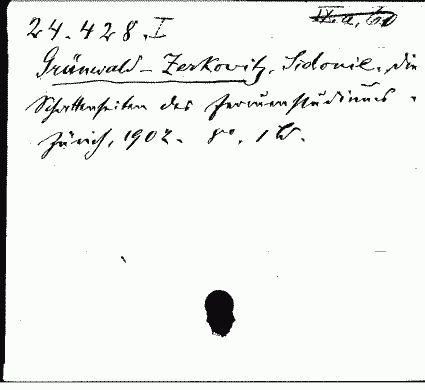 24.428.I
IX.a.60
Grünwald-Zerkowitz, Sidonie, die
Schattenseiten des Frauenstudiums.
Zürich, 1902. 8º. 1 W.